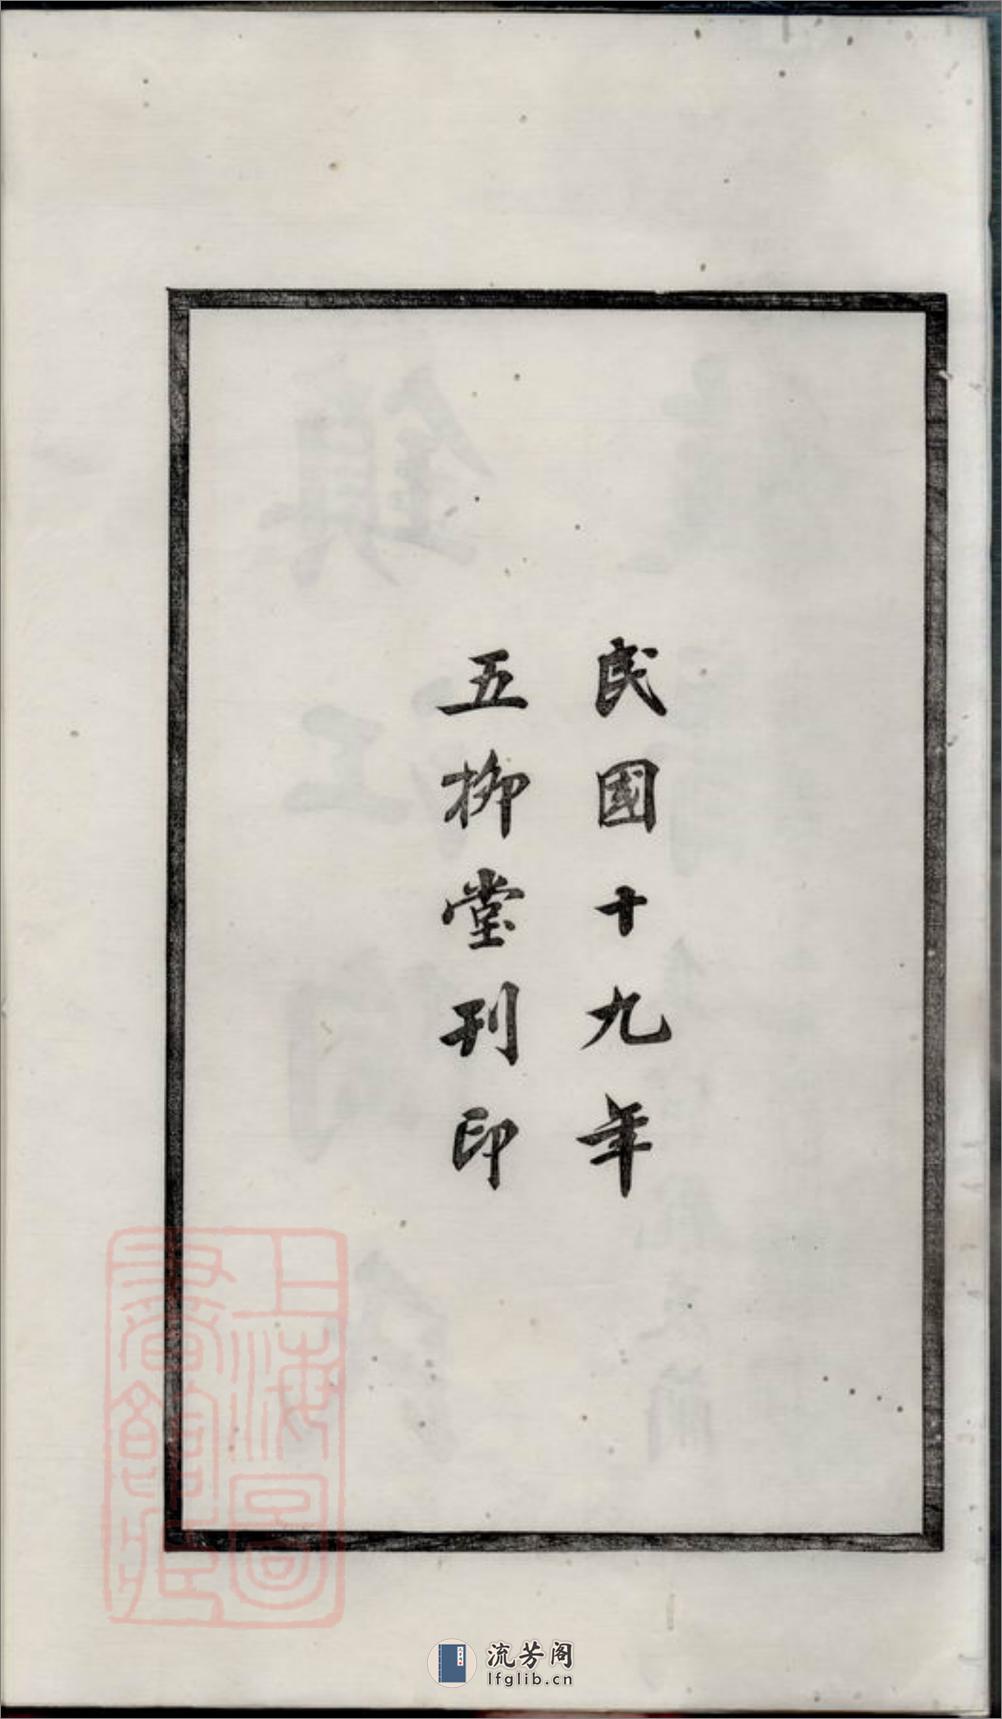 民國十九年
五柳堂刊印
上海圖
書館藏
流芳阁
lfglib.cn